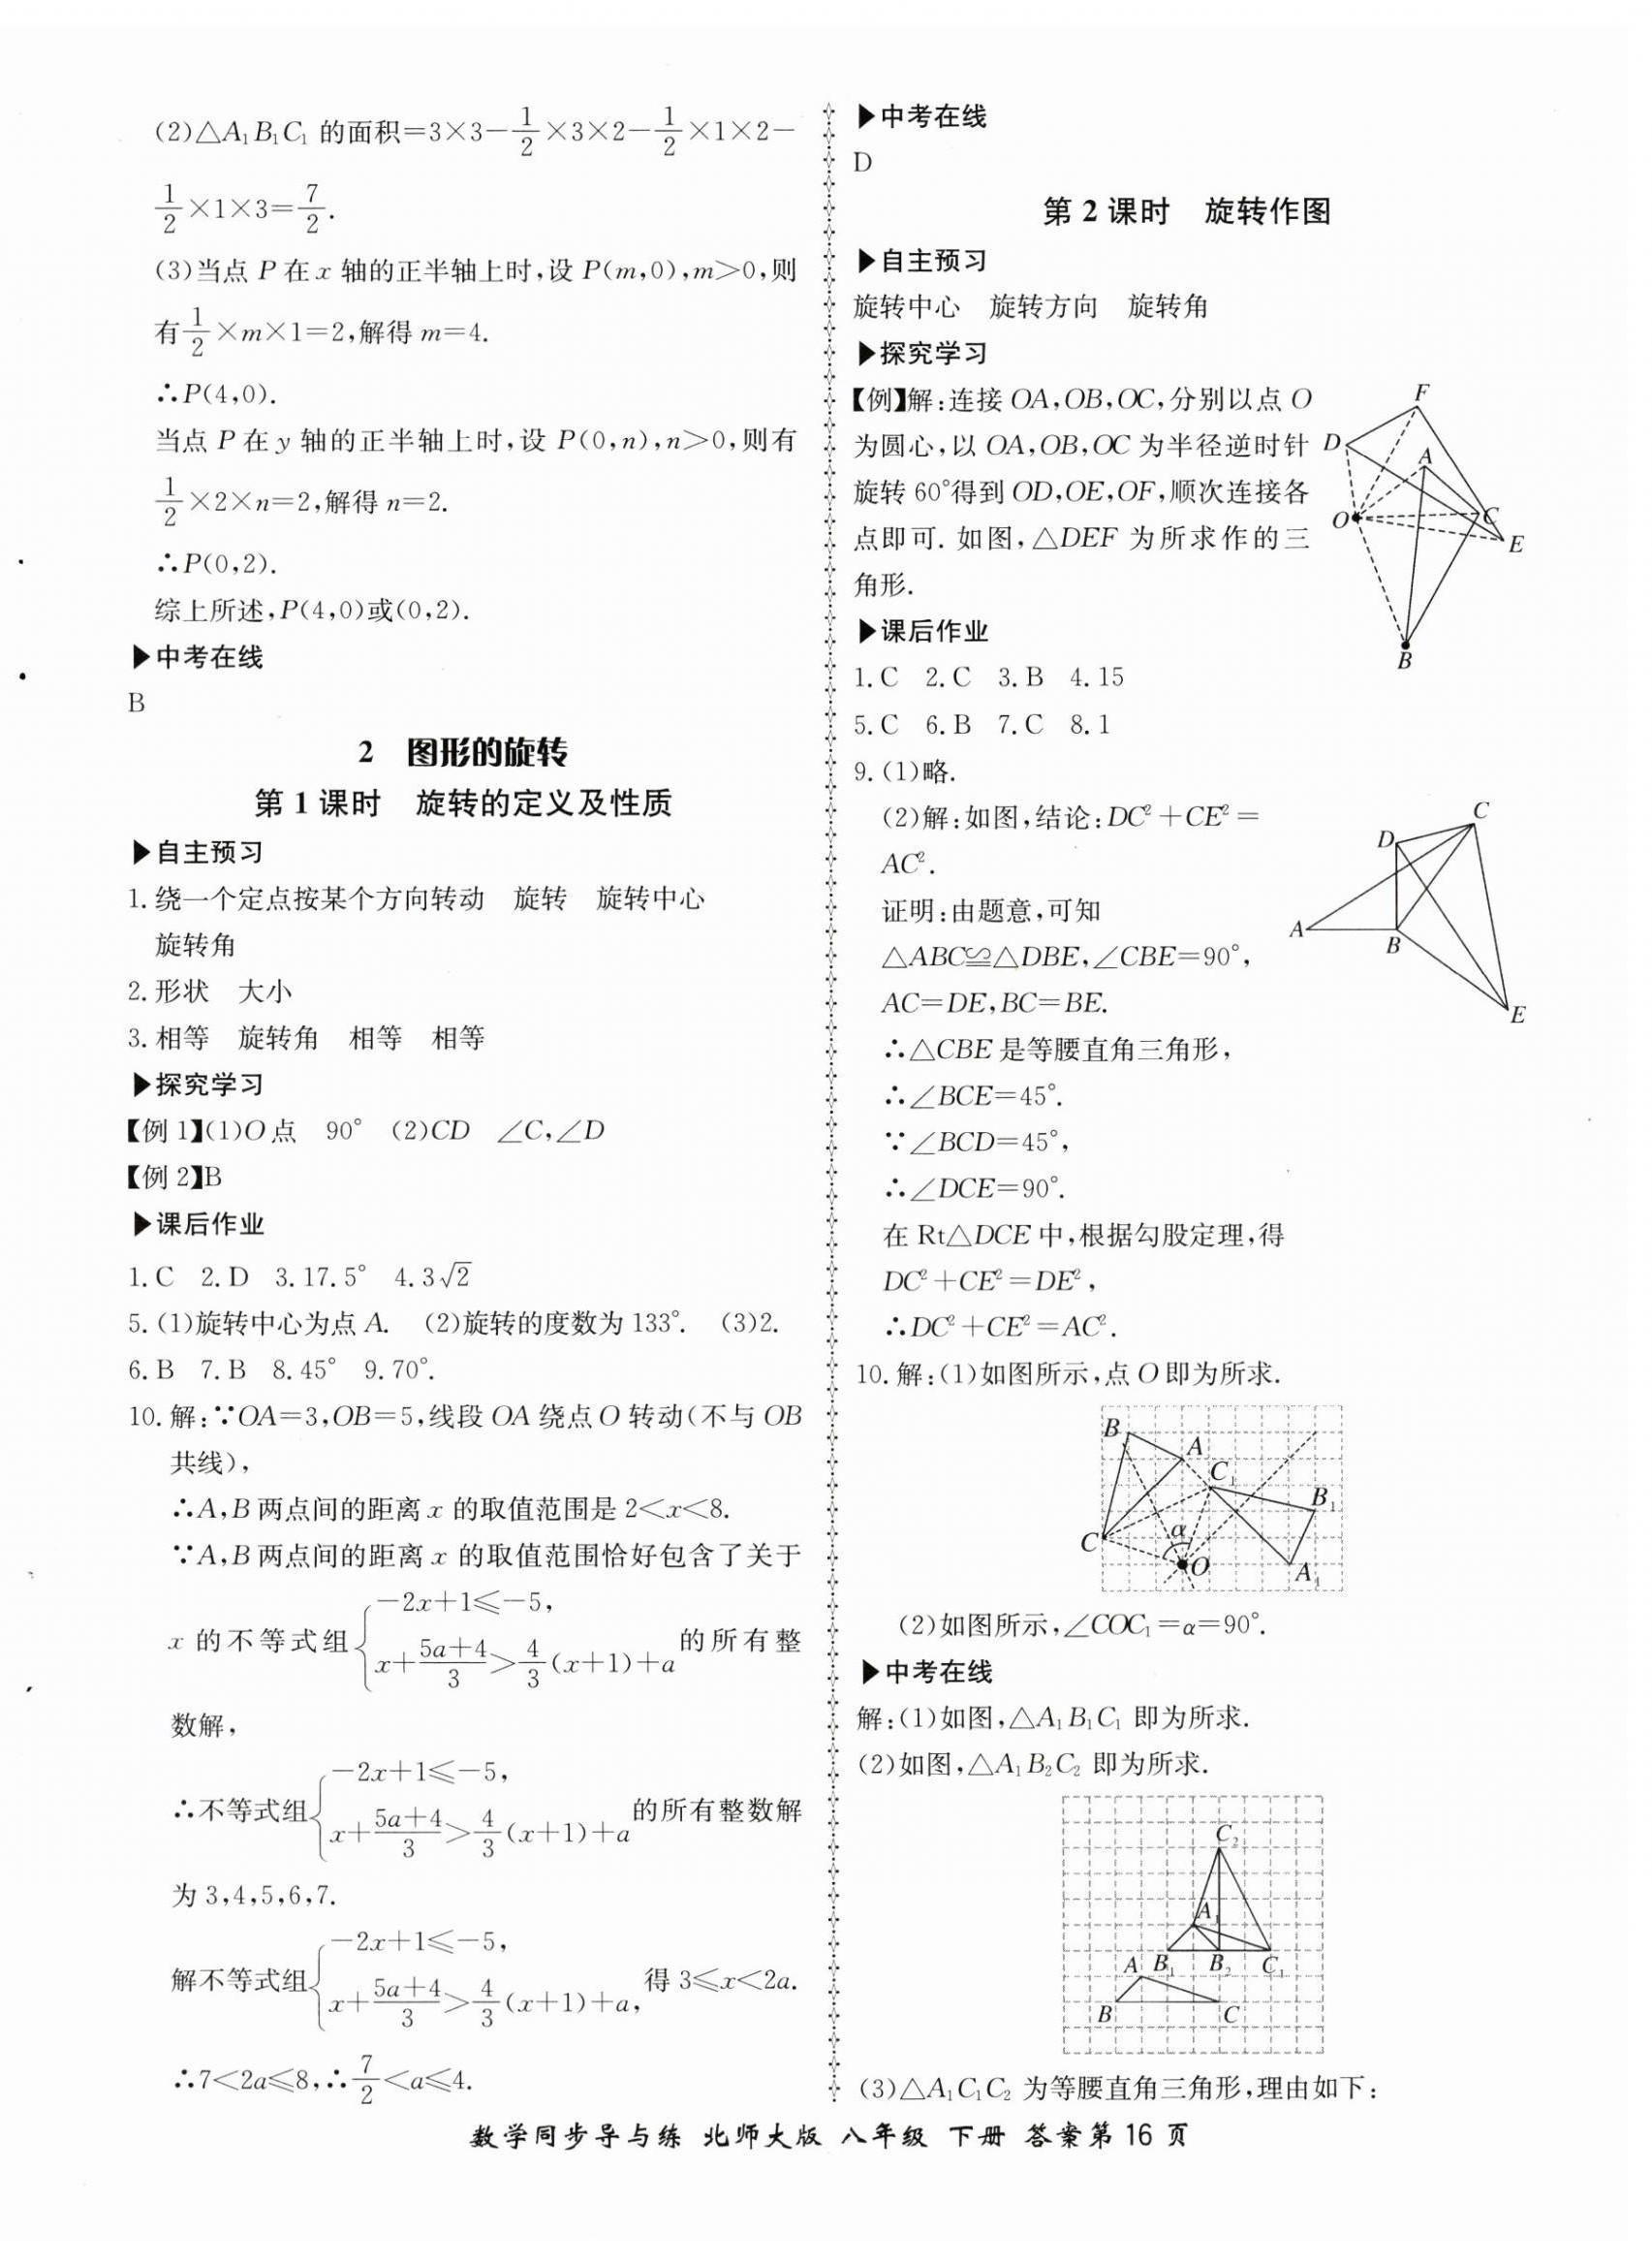 (2)△A₁B₁C₁ 的面积=3×3−1/2×3×2−1/2×1×2−
1/2×1×3=7/2.
(3)当点 P 在 x 轴的正半轴上时,设 P(m,0),m>0,则
有1/2×m×1=2,解得 m=4.
∴P(4,0).
当点 P 在 y 轴的正半轴上时,设 P(0,n),n>0,则有
1/2×2×n=2,解得 n=2.
∴P(0,2).
综上所述,P(4,0)或(0,2).
▶中考在线
B
2 图形的旋转
第 1 课时 旋转的定义及性质
▶自主预习
1. 绕一个定点按某个方向转动 旋转 旋转中心
旋转角
2. 形状 大小
3. 相等 旋转角 相等 相等
▶探究学习
【例 1】(1)O 点 90° (2)CD ∠C,∠D
【例 2】B
▶课后作业
1. C 2. D 3. 17.5° 4. 3√2
5. (1)旋转中心为点 A. (2)旋转的度数为 133°. (3)2.
6. B 7. B 8. 45° 9. 70°.
10. 解:∵OA=3,OB=5,线段 OA 绕点 O 转动(不与 OB
共线),
∴A,B 两点间的距离 x 的取值范围是 2<x<8.
∵A,B 两点间的距离 x 的取值范围恰好包含了关于
x 的不等式组{−2x+1⩽−5, x+(5a+4)/3>4/3(x+1)+a 的所有整
数解,
∴不等式组{−2x+1⩽−5, x+(5a+4)/3>4/3(x+1)+a 的所有整数解
为 3,4,5,6,7.
解不等式组{−2x+1⩽−5, x+(5a+4)/3>4/3(x+1)+a, 得 3⩽x<2a.
∴7<2a⩽8,∴7/2<a⩽4.
▶中考在线
D
第 2 课时 旋转作图
▶自主预习
旋转中心 旋转方向 旋转角
▶探究学习
【例】解:连接 OA,OB,OC,分别以点 O
为圆心,以 OA,OB,OC 为半径逆时针
旋转 60°得到 OD,OE,OF,顺次连接各
点即可. 如图,△DEF 为所求作的三
角形.
F
D
A
O
C
E
B
▶课后作业
1. C 2. C 3. B 4. 15
5. C 6. B 7. C 8. 1
9. (1)略.
(2)解:如图,结论:DC²+CE²=
AC².
证明:由题意,可知
△ABC≌△DBE,∠CBE=90°,
AC=DE,BC=BE.
∴△CBE 是等腰直角三角形,
∴∠BCE=45°.
∵∠BCD=45°,
∴∠DCE=90°.
在 Rt△DCE 中,根据勾股定理,得
DC²+CE²=DE²,
∴DC²+CE²=AC².
C
D
A
B
E
10. 解:(1)如图所示,点 O 即为所求.
B
A
C₁
B₁
C
α
O
A₁
(2)如图所示,∠COC₁=α=90°.
▶中考在线
解:(1)如图,△A₁B₁C₁ 即为所求.
(2)如图,△A₁B₂C₂ 即为所求.
C₂
A₁
A B₁ B₂ C₁
B C
(3)△A₁C₁C₂ 为等腰直角三角形,理由如下:
数学同步导与练 北师大版 八年级 下册 答案第 16 页